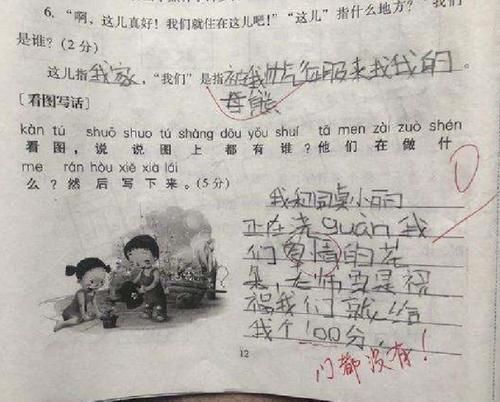 6. “啊，这儿真好！我们就住在这儿吧！”“这儿”指什么地方？“我们”
是谁？(2分)
这儿指我家，“我们”是指被我帅气征服来找我的
母熊。
[看图写话]
kàn tú shuō shuo tú shàng dōu yǒu shuí tā men zài zuò shén
看图，说说图上都有谁？他们在做什
me rán hòu xiě xià lái
么？然后写下来。(5分)
我和同桌小丽
正在浇guàn我
们爱情的花
朵，老师要是祝
福我们就给
我个100分.
门都没有！
12